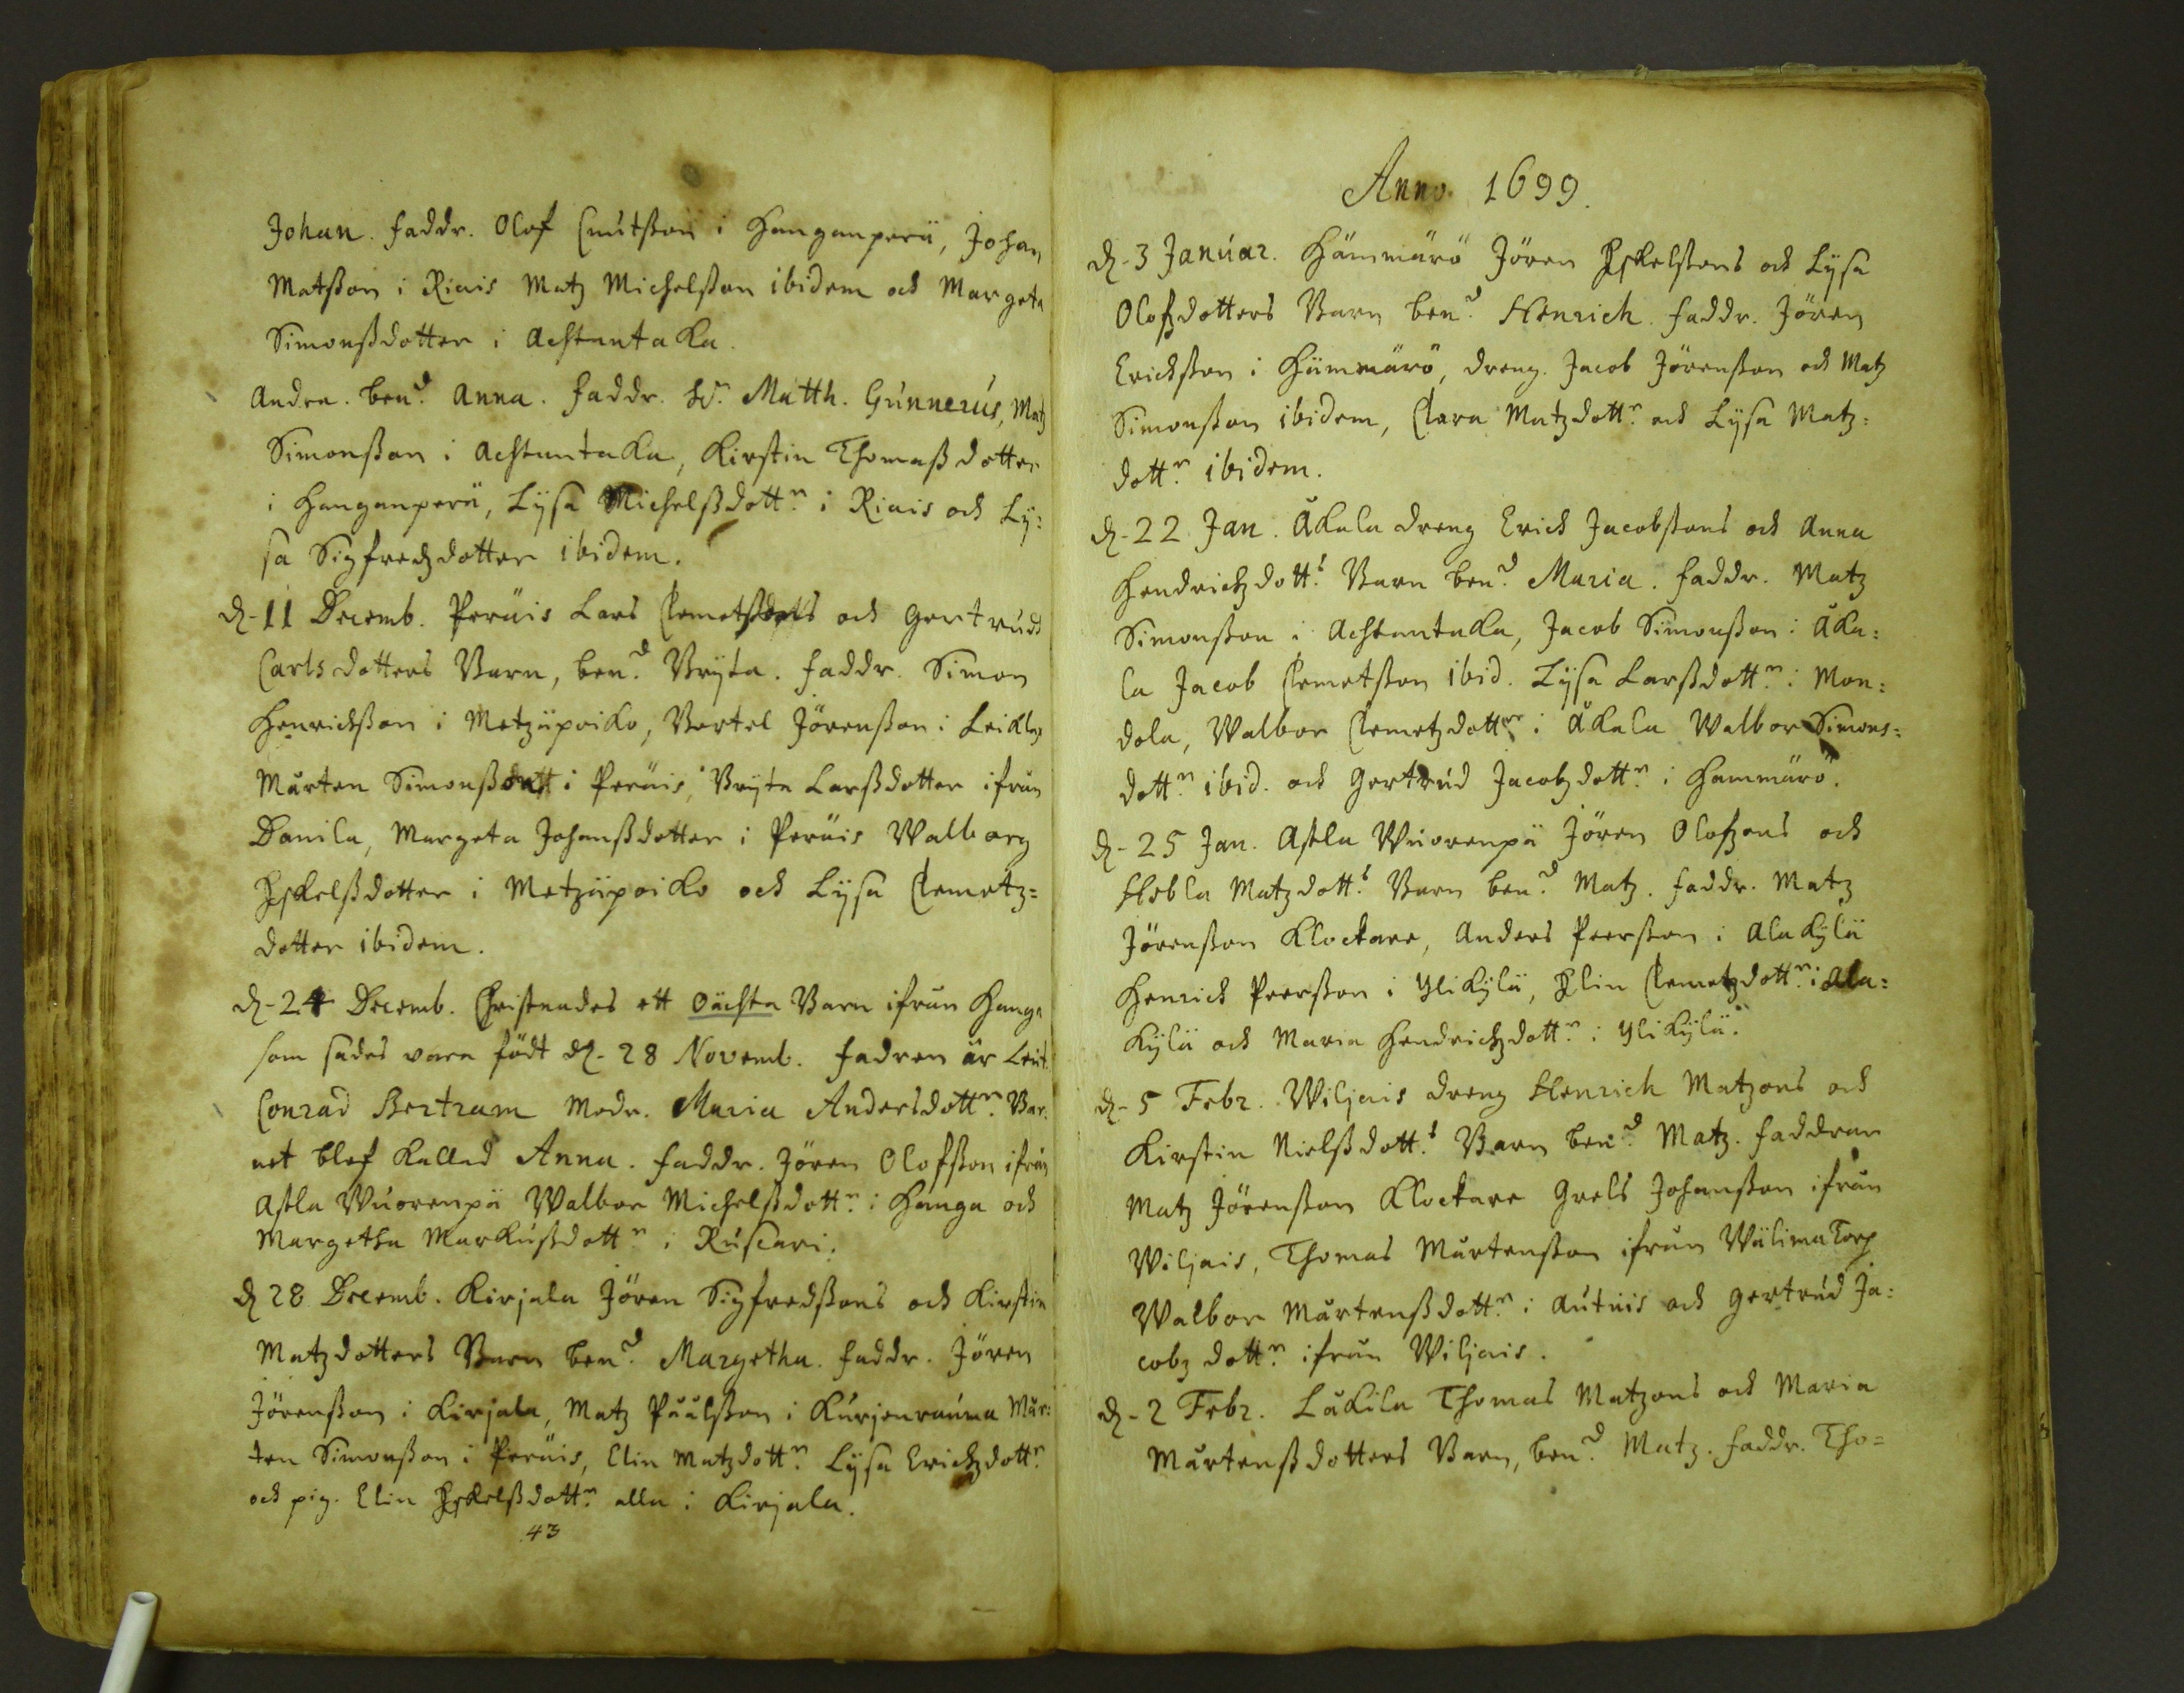 Johan. faddr. Olof Cnutßon i Hanganperä, Johan
Matßon i Riais Matz Michelßon ibidem och Margeta
Simonßdotter i Achtantaka.
Andra. ben.d Anna. faddr. Hr. Matth. Gunnerus, Matz
Simonßon i Achtantaka, Kirstin Thomaßdotter
i Hanganperä, Lysa Michelßdottr. i Riais och Ly:
sa Sigfredzdotter ibidem.
d. 11 Decemb. Peräis Lars Clemetß och Gertrudh
Carlsdotters Barn, ben.d Bryta. faddr. Simon
Henrichßon i Metzäpoiko, Bertel Jörenßon i Leikla
Mårten Simonß i Peräis, Bryta Larßdotter ifrån
Danila, Margeta Johanßdotter i Peräis Walborg
Eskelßdotter i Metzäpoiko och Lysa Clemetz=
dotter ibidem.
d. 24 Decemb. Christnades ett oächta Barn ifrån Hanga
som sades vara födt d. 28 Novemb. fadren är Leut.
Conrad Bertram Modr. Maria Andersdottr. Bar:
net blef kallad Anna. faddr. Jören Olofßon ifrån
Astla Wuorenpä Walbor Michelßdottr. i Hanga och
Margetha Markußdottr. i Ruscari.
d. 28 Decemb. Kirjala Jören Sigfredßons och Kirstin
Matzdotters Barn ben.d Margetha. faddr. Jören
Jörenßon i Kirjala, Matz Påålßon i Kurjenrauma Mår:
ten Simonßon i Peräis, Elin Matzdottr. Lysa Erichzdottr.
och pig. Elin Eskelßdottr. alla i Kirjala.
43
Anno 1699.
d. 3 Januar. Hämmärö Jören Eskelßons och Lysa
Olofzdotters Barn ben.d Henrich. faddr. Jören
Erichßon i Hämmärö, dreng. Jacob Jörenßon och Matz
Simonßon ibidem, Clara Matzdottr. och Lysa Matz:
dottr. ibidem.
d. 22 Jan. Åkala dreng Erich Jacobßons och Anna
Hendrichzdotts. Barn ben.d Maria. faddr. Matz
Simonßon i Achtantaka, Jacob Simonßon i Åka:
la Jacob Clemetßon ibid. Lysa Larßdottr. i Mon:
dola, Walbor Clemetzdottr. i Åkala Walbor Simons:
dottr. ibid. och Gertrud Jacobzdottr. i Hammärö.
d. 25 Jan. Astla Wuorenpä Jören Olofzons och
Hebla Matzdotts. Barn ben.d Matz. faddr. Matz
Jörenßon Klockare, Anders Peerßon i Alakylä
Henrich Peerßon i Ylikylä, Elin Clemetzdottr. i Ala:
kylä och Maria Hendrichzdottr. i Ylikylä.
d. 5 Febr. Wiljais dreng Henrich Matzons och
Kirstin Nielßdotts. Barn ben.d Matz. faddran
Matz Jörenßon Klockare Grels Johanßon ifrån
Wiljais, Thomas Mårtenßon ifrån Wälimatorp
Walbor Mårtenßdottr. i Autuis och Gertrud Ja:
cobz dottr. ifrån Wiljais.
d. 2 Febr. Låkila Thomas Matzons och Maria
Mårtenßdotters Barn, ben.d Matz. faddr. Tho=